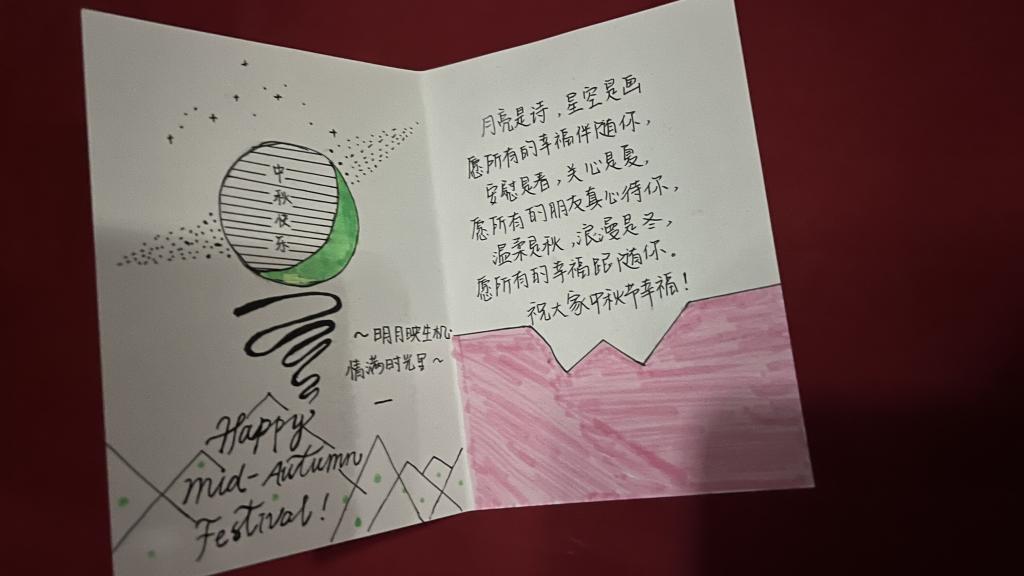 中
秋
快
乐
~明月映生机
情满时光里~
Happy
Mid-Autumn
Festival!
月亮是诗，星空是画
愿所有的幸福伴随你，
安慰是春，关心是夏，
愿所有的朋友真心待你，
温柔是秋，浪漫是冬，
愿所有的幸福跟随你。
祝大家中秋节幸福！